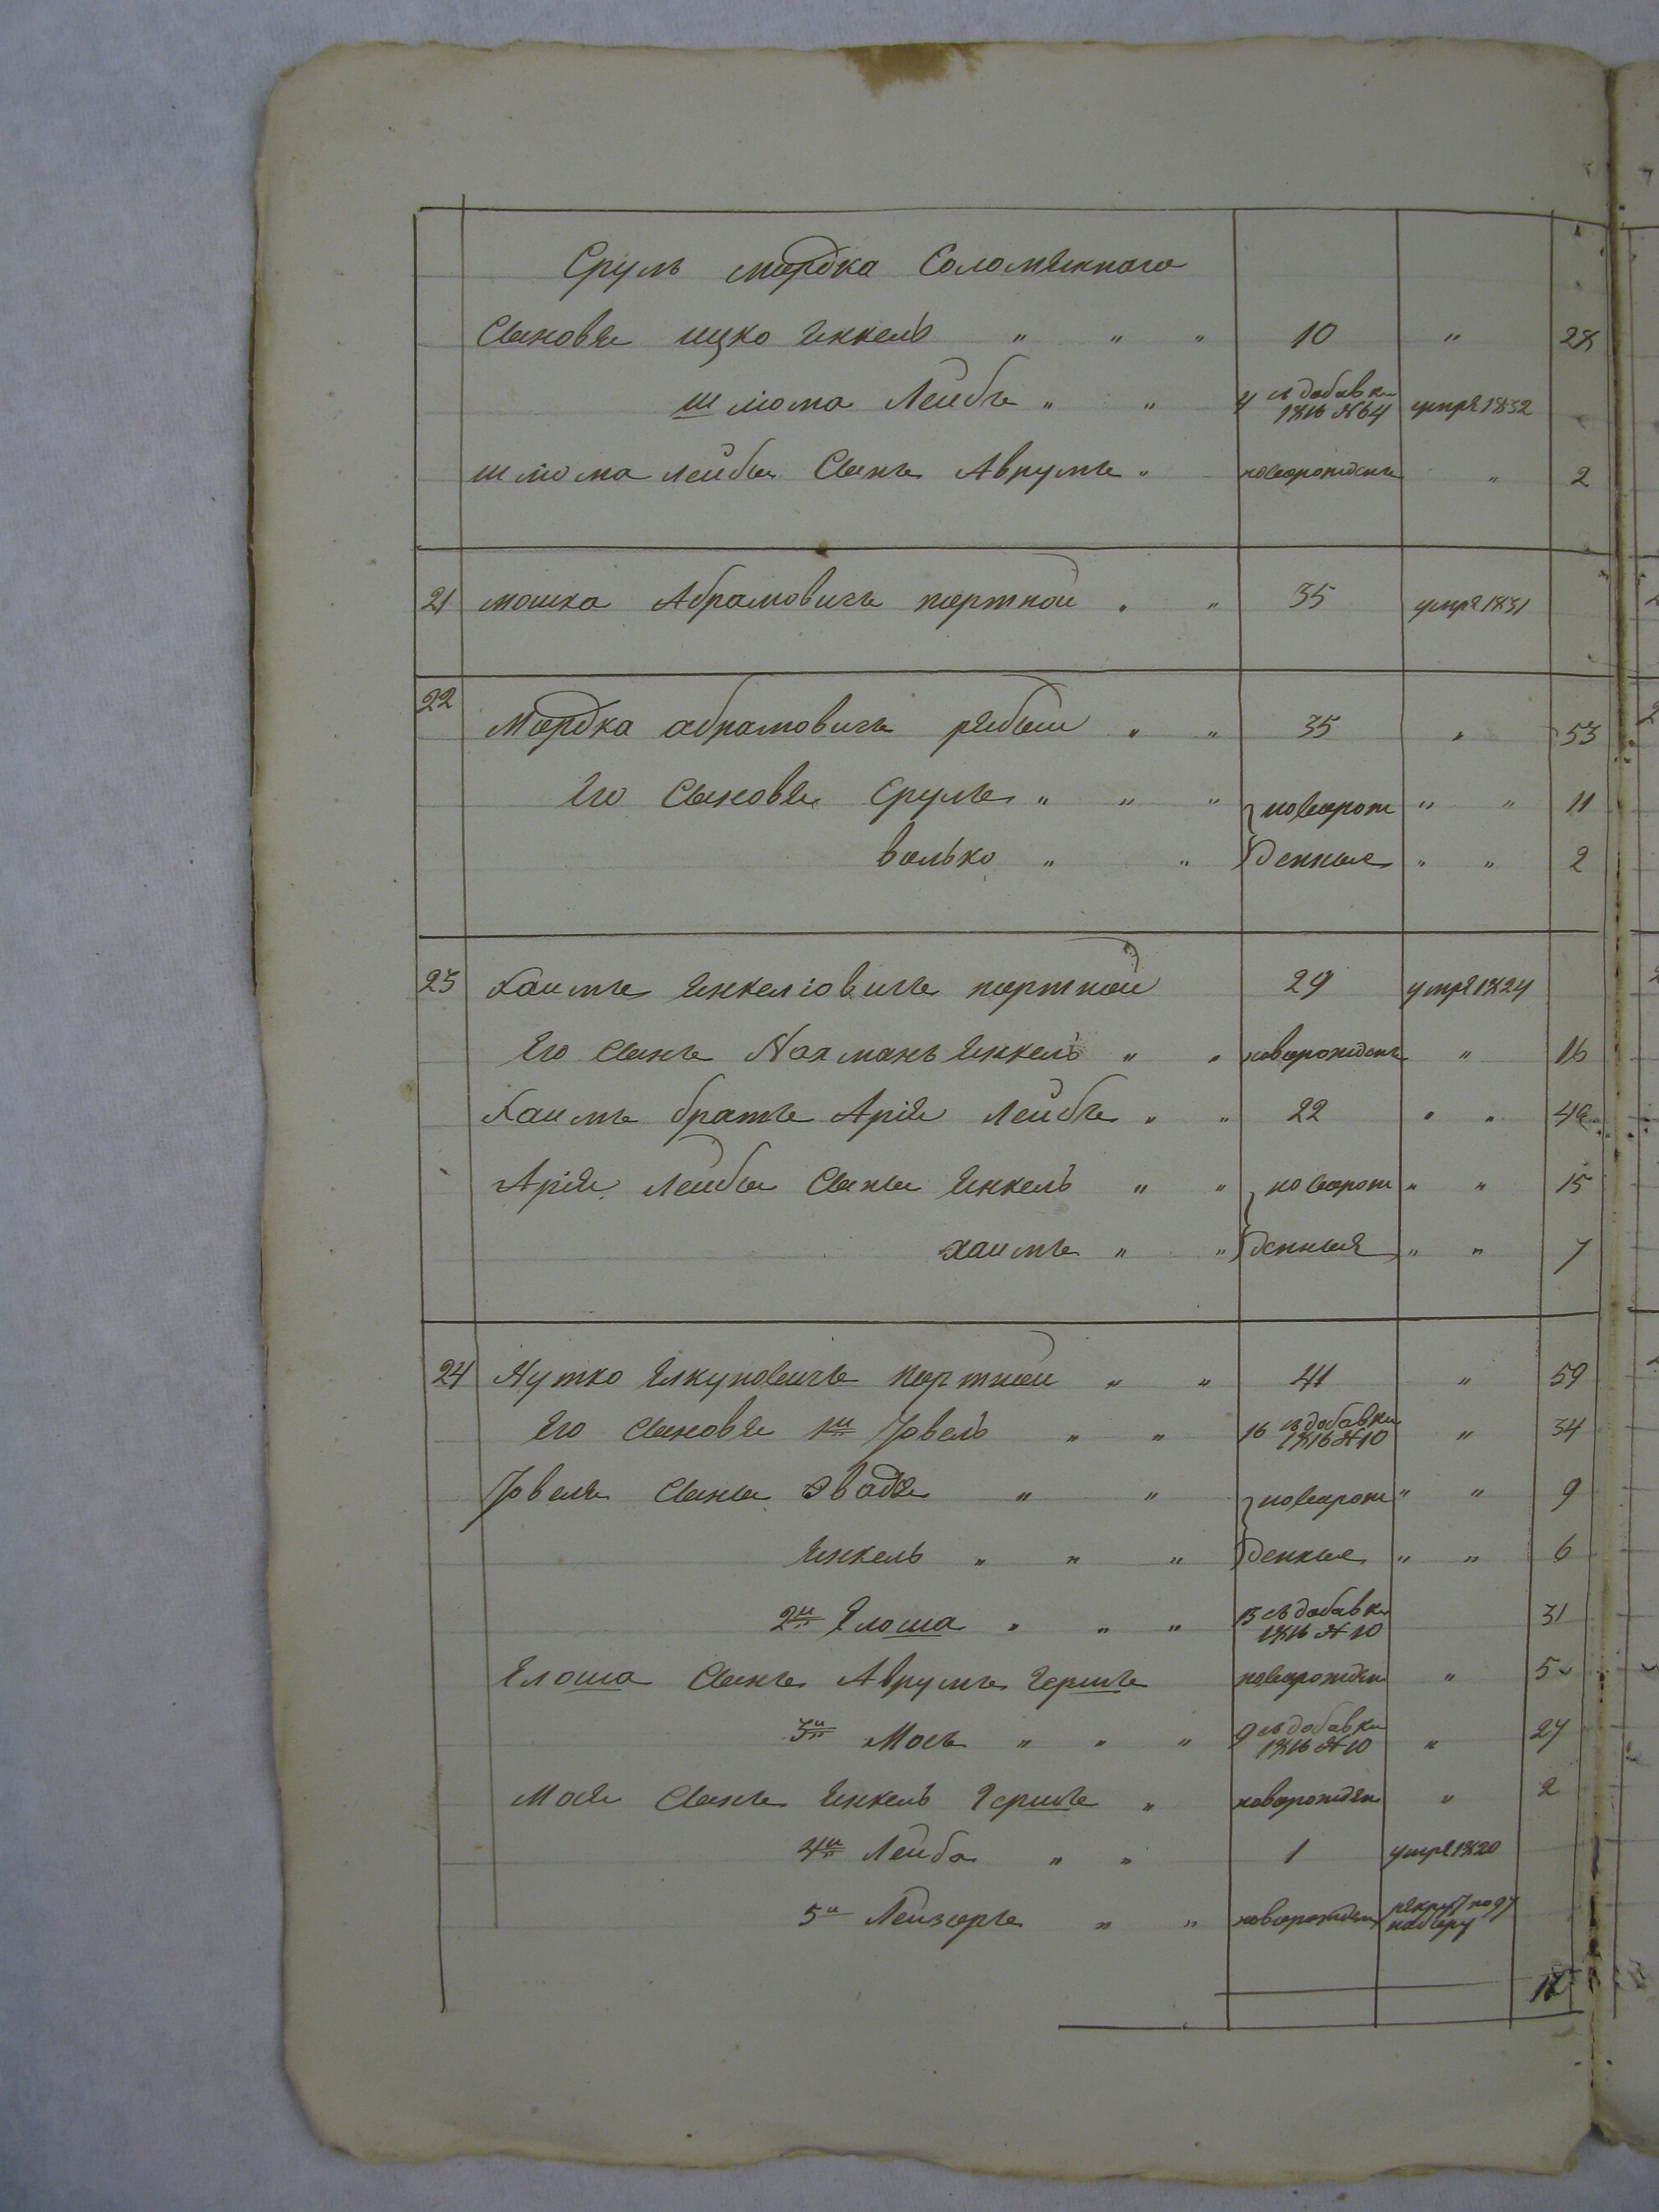 Сруль мордка Соломяннаго
Сыновья ицко Янкель " " " 10 " 28
шлиома Лейбъ " " 4 съ добавки 1816 №64 умре 1832
шлиома лейбы Сынъ Аврумъ " новорожденъ " 2
21 мошка Абрамовичъ портной " " 35 умре 1831
22 Мордка абрамовичъ рябый " " 35 " 53
Его Сыновья Сруль " " " новорож " " 11
волько " " денные " " 2
23 Хаимъ Янкелiовичъ портной 29 умре 1824
Его Сынъ Нахманъ Янкель " " новорожденъ " 16
Хаимъ братъ Арiя Лейбъ " " 22 " " 40
Арiя Лейбы Сыны Янкель " " новорож " " 15
хаимъ " " денныя " " 7
24 Нутко Янкуповичъ портной " " 41 " 59
Его Сыновья 1й Iовель " " 16 съ добавки 1816 №10 " 34
Iовеля Сыны Овадя " " новорож " " 9
Янкель " " " денные " " 6
2й Елоша " " " 13 съ добавки 1816 №10 31
Елоша Сынъ Аврумъ Гершъ новорожден " 5
3й Мось " " " 9 съ добавки 1816 №10 " 27
Мося Сынъ Янкель Гершъ " новорожден " 2
4й Лейба " " 1 умре 1820
5й Лейзоръ " " новорожден рекрут по 97 набору